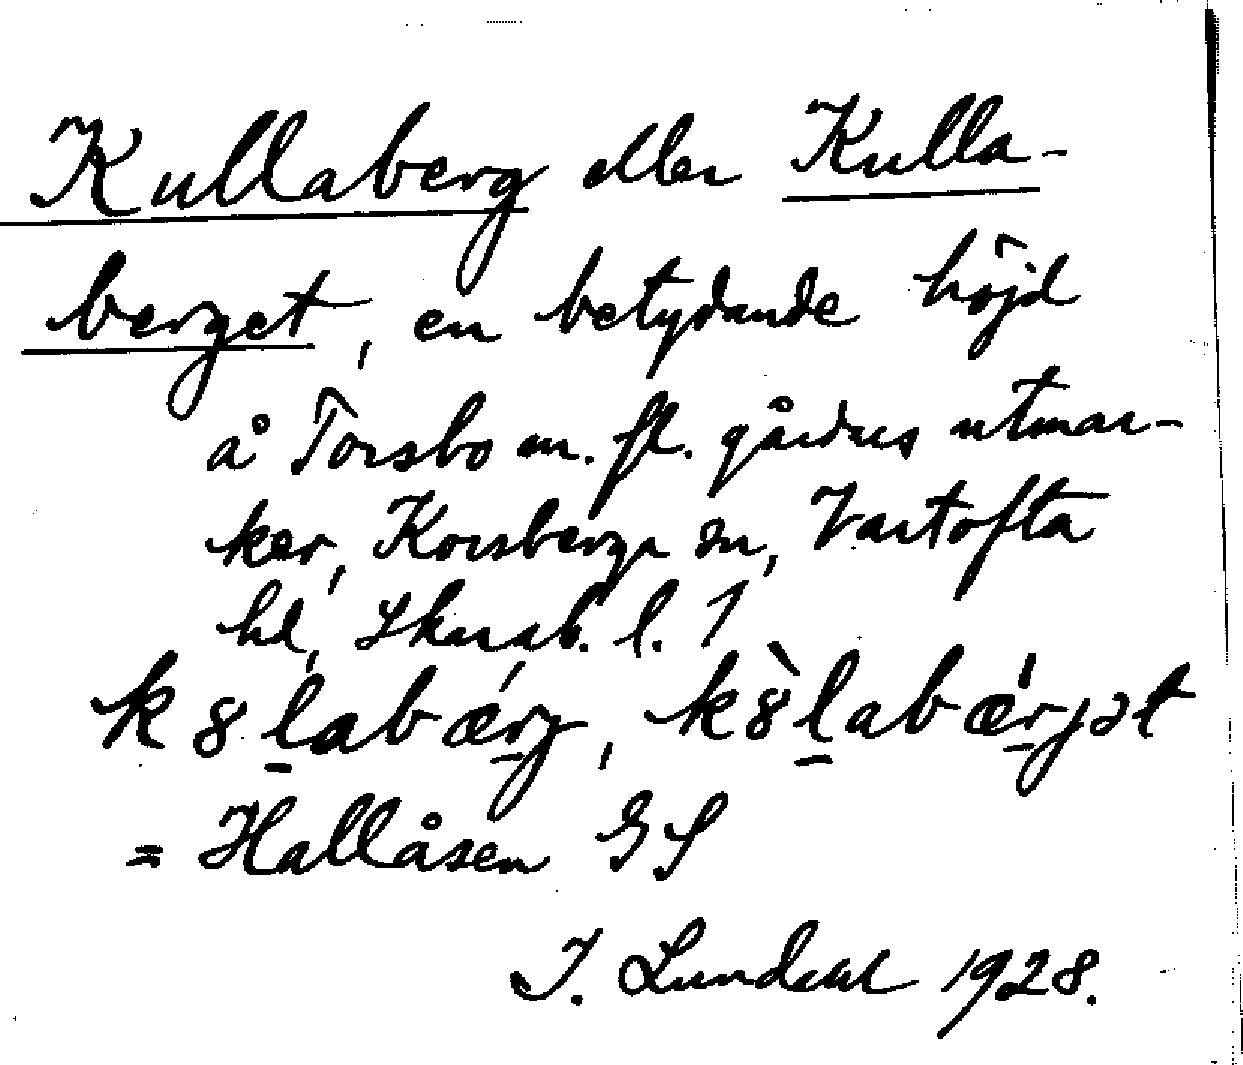 Kullaberg eller Kulla-
berget, en betydande höjd
å Torsbo m. fl. gårdars utmar-
ker, Korsberga sn, Vartofta
hd, Skarab. l.
k8labærg, k8̀labæ̍rjət
= Hallåsen GS
I. Lundahl 1928.